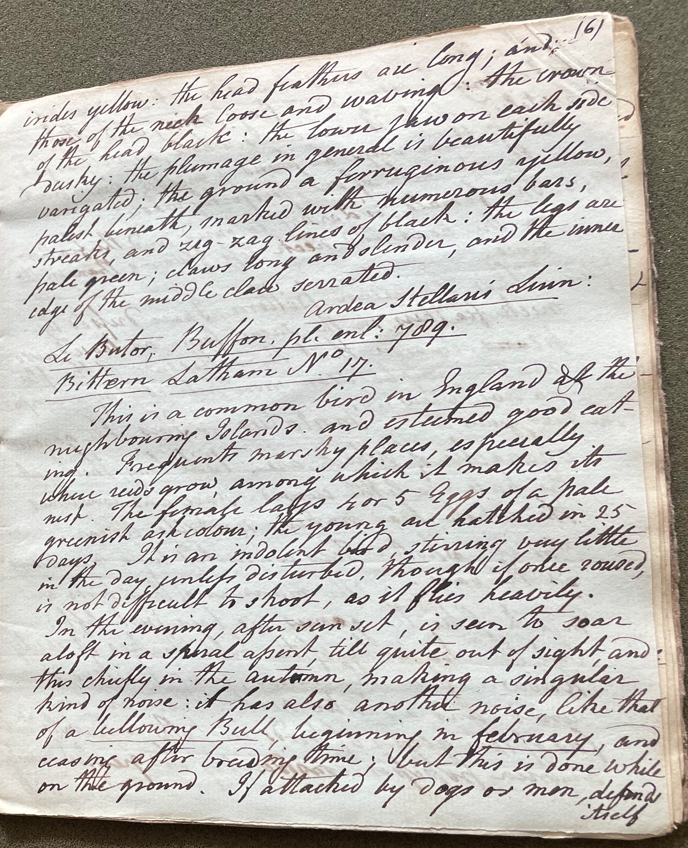 (6)
irides yellow: the head feathers are long; and,
those of the neck loose and waving: the crown
of the head black: the lower jaw on each side
dusky: the plumage in general is beautifully
varigated; the ground a ferruginous yellow,
palest beneath, marked with numerous bars,
streaks, and zeg-zag lines of black: the legs are
pale green; claws long and slender, and the inner
edge of the middle claw serrated.
Ardea Stellaris Linn:
Le Butor, Buffon. pl. enl: 789.
Bittern Latham No 17.
This is a common bird in England & the
neighbouring Islands. and esteemed good eat-
ing. Frequents marshy places, especially
where reeds grow, among which it makes its
nest. The female lays 4 or 5 Eggs of a pale
greenish ash colour; the young are hatched in 25
days. It is an indolent bird, stirring very little
in the day, unless disturbed, though if once roused,
is not difficult to shoot, as it flies heavily.
In the evening, after sun set, is seen to soar
aloft in a spiral assent, till quite out of sight, and
this chiefly in the autumn, making a singular
kind of noise: it has also another noise, like that
of a bellowing Bull, beginning in february, and
ceasing after breeding time; but this is done while
on the ground. If attacked by dogs or men, defends
itself